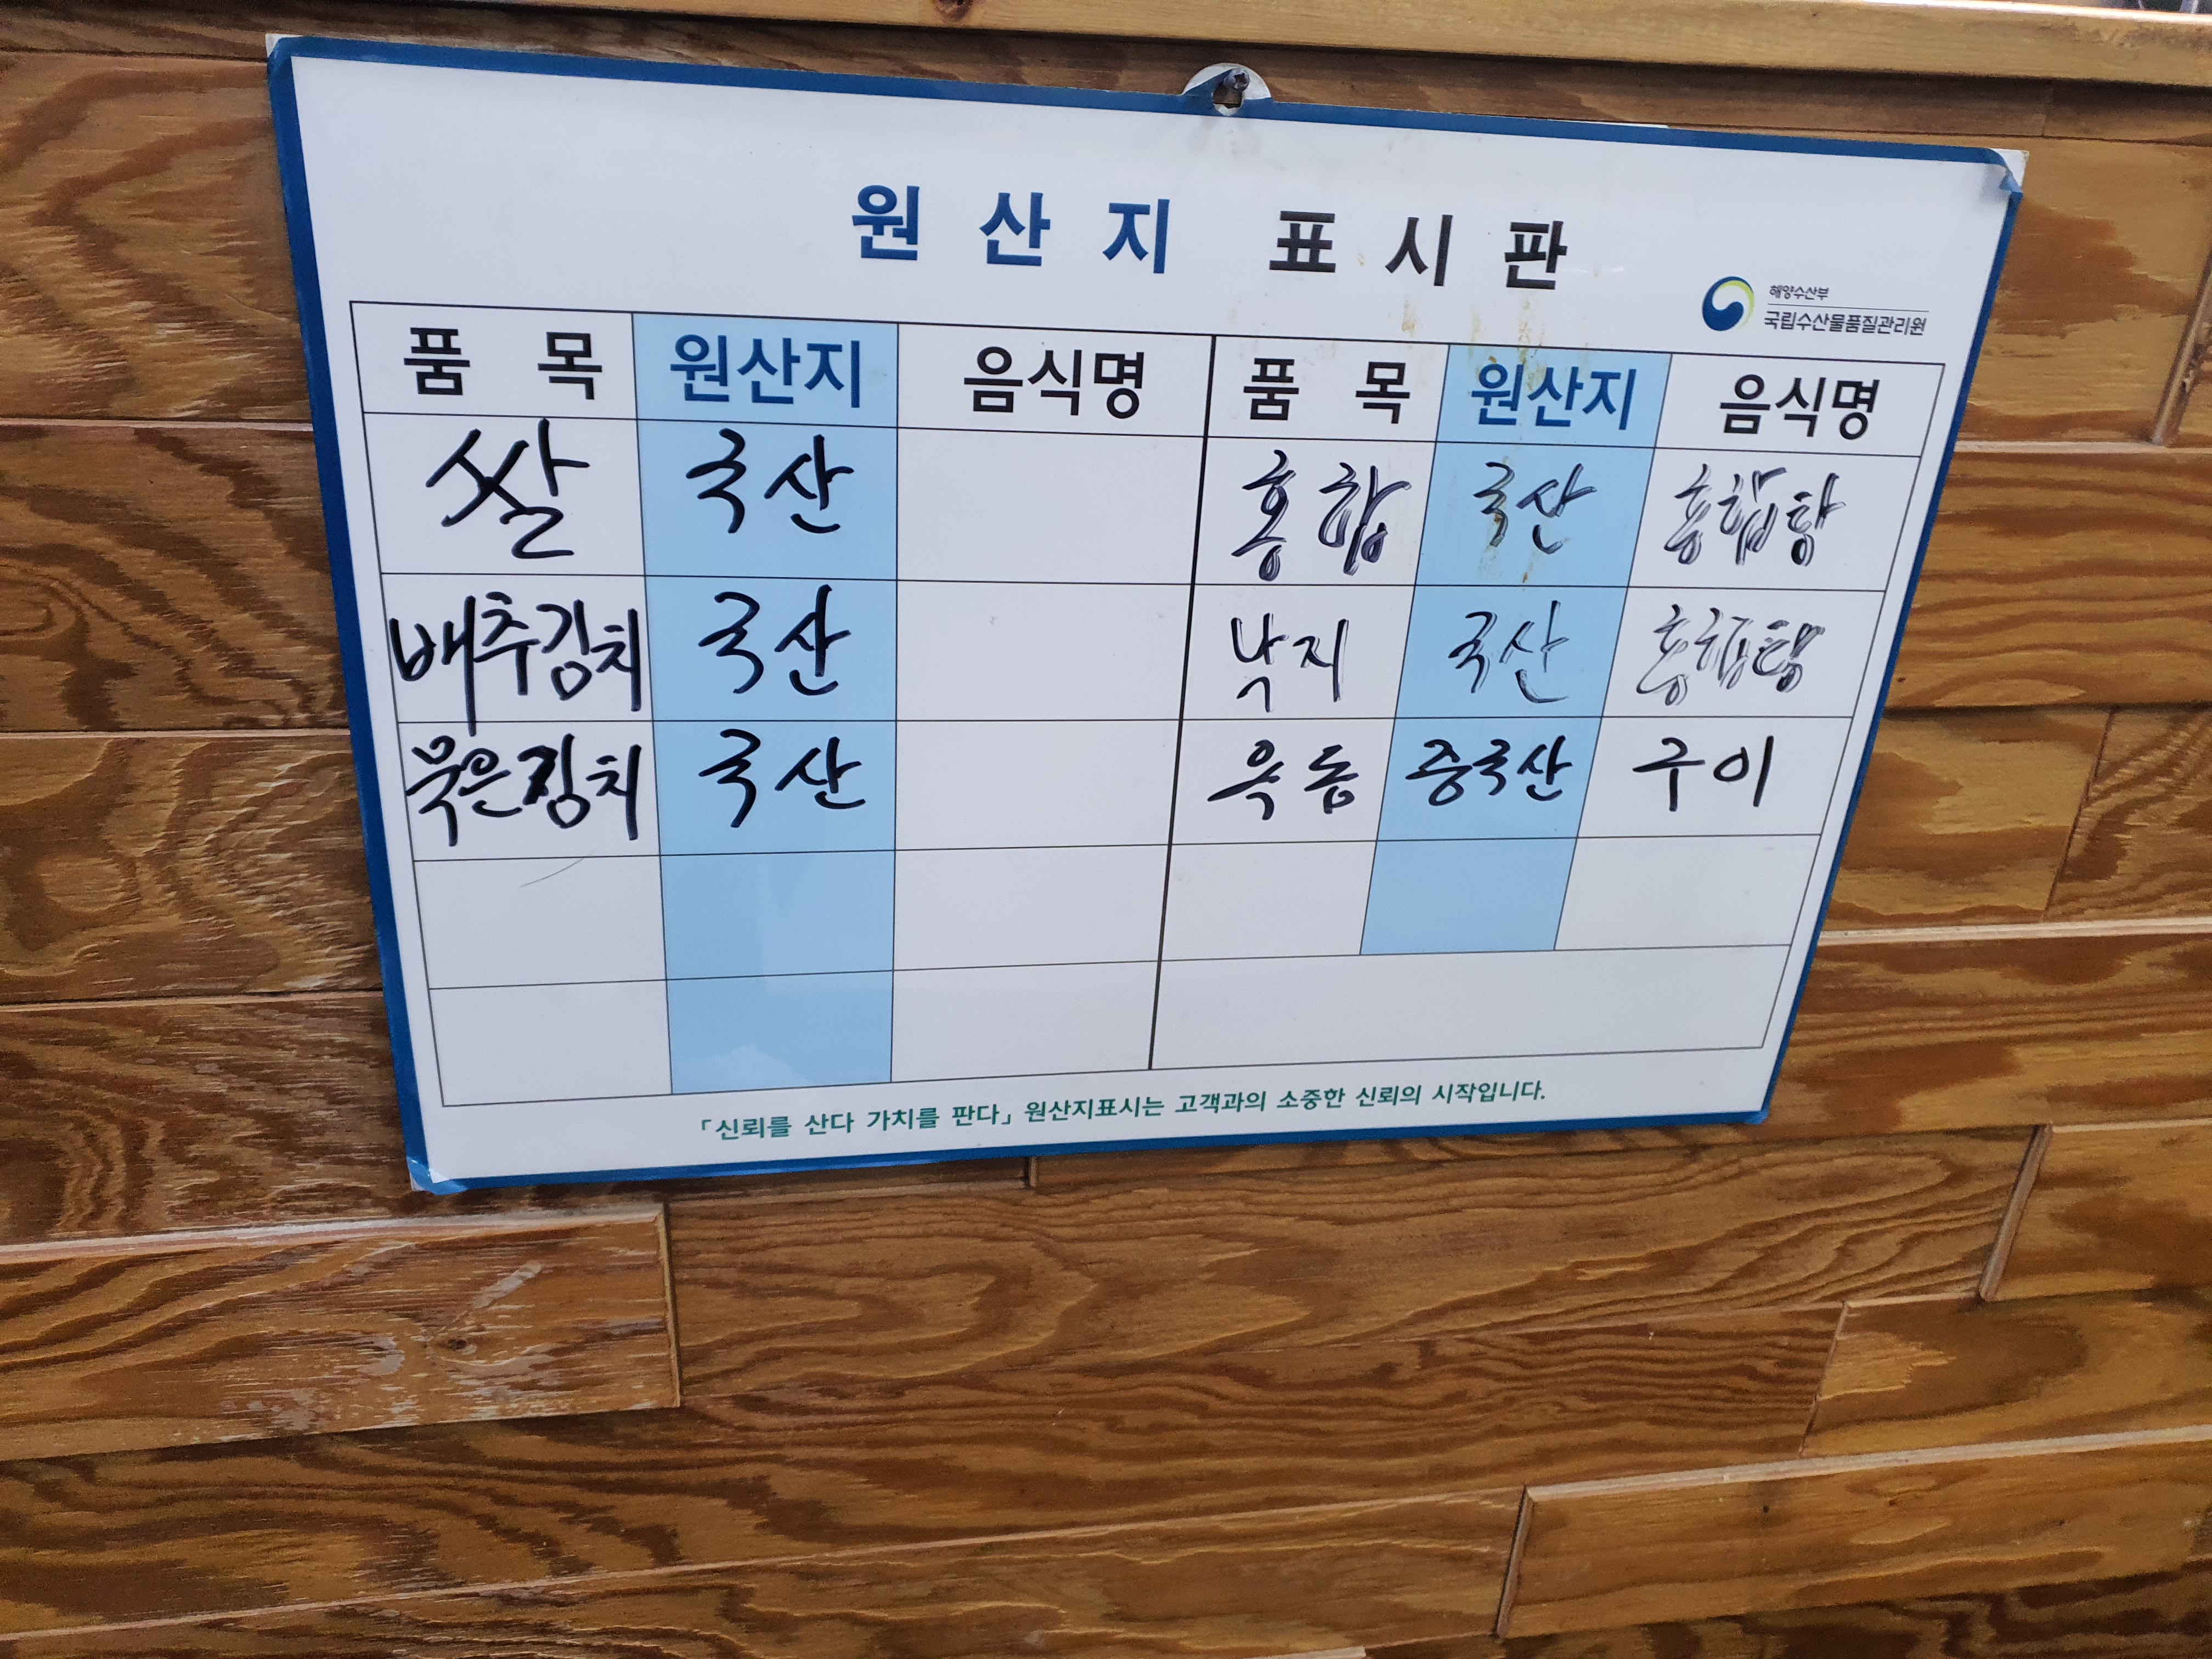 원산지 표시판
해양수산부
국립수산물품질관리원
품목 원산지 음식명 품목 원산지 음식명
쌀 국산 홍합 국산 홍합탕
배추김치 국산 낙지 국산 홍합탕
묵은김치 국산 옥돔 중국산 구이
「신뢰를 산다 가치를 판다」 원산지표시는 고객과의 소중한 신뢰의 시작입니다.